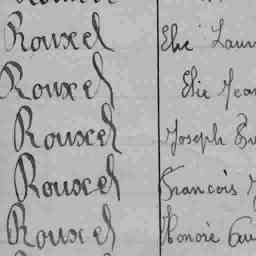 Rouxel Elie
Rouxel Elie Jean
Rouxel Joseph
Rouxel Francois
Rouxel Honoré